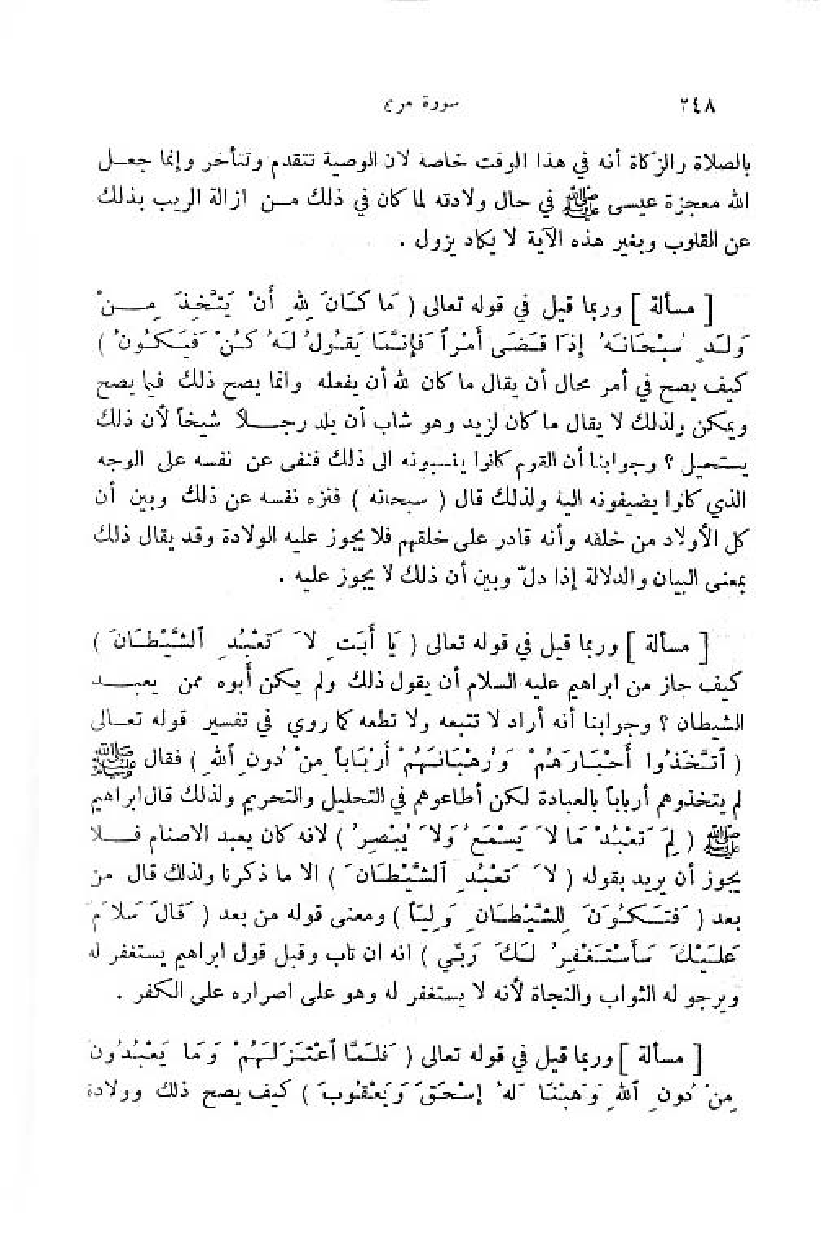 ٢٤٨ سورة مريم
بالصلاة والزكاة أنه في هذا الوقت خاصه لان الوصية تتقدم وتتأخر وإنما جعـل
الله معجزة عيسى ﷺ في حال ولادته لما كان في ذلك مـن ازالة الريب بذلك
عن القلوب وبغير هذه الآية لا يكاد يزول .
[ مسألة ] وربما قيل في قوله تعالى ( مَا كَانَ لِلهِ أَنْ يَتَّخِذَ مِـنْ
وَلَدٍ سُبْحَانَهُ إِذَا قَضَى أَمْراً فَإِنَّمَا يَقُولُ لَهُ كُنْ فَيَكُونُ )
كيف يصح في أمر محال أن يقال ما كان لله أن يفعله وانما يصح ذلك فيما يصح
ويمكن ولذلك لا يقال ما كان لزيد وهو شاب أن يلد رجـلا شيخاً لأن ذلك
يستحيل ؟ وجوابنا أن القوم كانوا ينسبونه الى ذلك فنفى عن نفسه على الوجه
الذي كانوا يضيفونه اليه ولذلك قال ( سبحانه ) فنزه نفسه عن ذلك وبين أن
كل الأولاد من خلقه وأنه قادر على خلقهم فلا يجوز عليه الولادة وقد يقال ذلك
بمعنى البيان والدلالة إذا دلّ وبين أن ذلك لا يجوز عليه .
[ مسألة ] وربما قيل في قوله تعالى ( يَا أَبَتِ لَا تَعْبُدِ ٱلشَّيْطَانَ )
كيف جاز من ابراهيم عليه السلام أن يقول ذلك ولم يكن أبوه ممن يعبـد
الشيطان ؟ وجوابنا أنه أراد لا تتبعه ولا تطعه كما روي في تفسير قوله تعـالى
( ٱتَّخَذُوا أَحْبَارَهُمْ وَرُهْبَانَهُمْ أَرْبَاباً مِنْ دُونِ ٱللهِ ) فقال ﷺ
لم يتخذوهم أرباباً بالعبادة لكن أطاعوهم في التحليل والتحريم ولذلك قال ابراهيم
ﷺ ( لِمَ تَعْبُدُ مَا لَا يَسْمَعُ وَلَا يُبْصِرُ ) لانه كان يعبد الاصنام فـلا
يجوز أن يريد بقوله ( لَا تَعْبُدِ ٱلشَّيْطَانَ ) الا ما ذكرنا ولذلك قال من
بعد ( فَتَكُونَ لِلشَّيْطَانِ وَلِيّاً ) ومعنى قوله من بعد ( قَالَ سَلَامٌ
عَلَيْكَ سَأَسْتَغْفِرُ لَكَ رَبِّي ) انه ان تاب وقبل قول ابراهيم يستغفر له
ويرجو له الثواب والنجاة لأنه لا يستغفر له وهو على اصراره على الكفر .
[ مسألة ] وربما قيل في قوله تعالى ( فَلَمَّا ٱعْتَزَلَهُمْ وَمَا يَعْبُدُونَ
مِنْ دُونِ ٱللهِ وَهَبْنَا لَهُ إِسْحَقَ وَيَعْقُوبَ ) كيف يصح ذلك وولادة